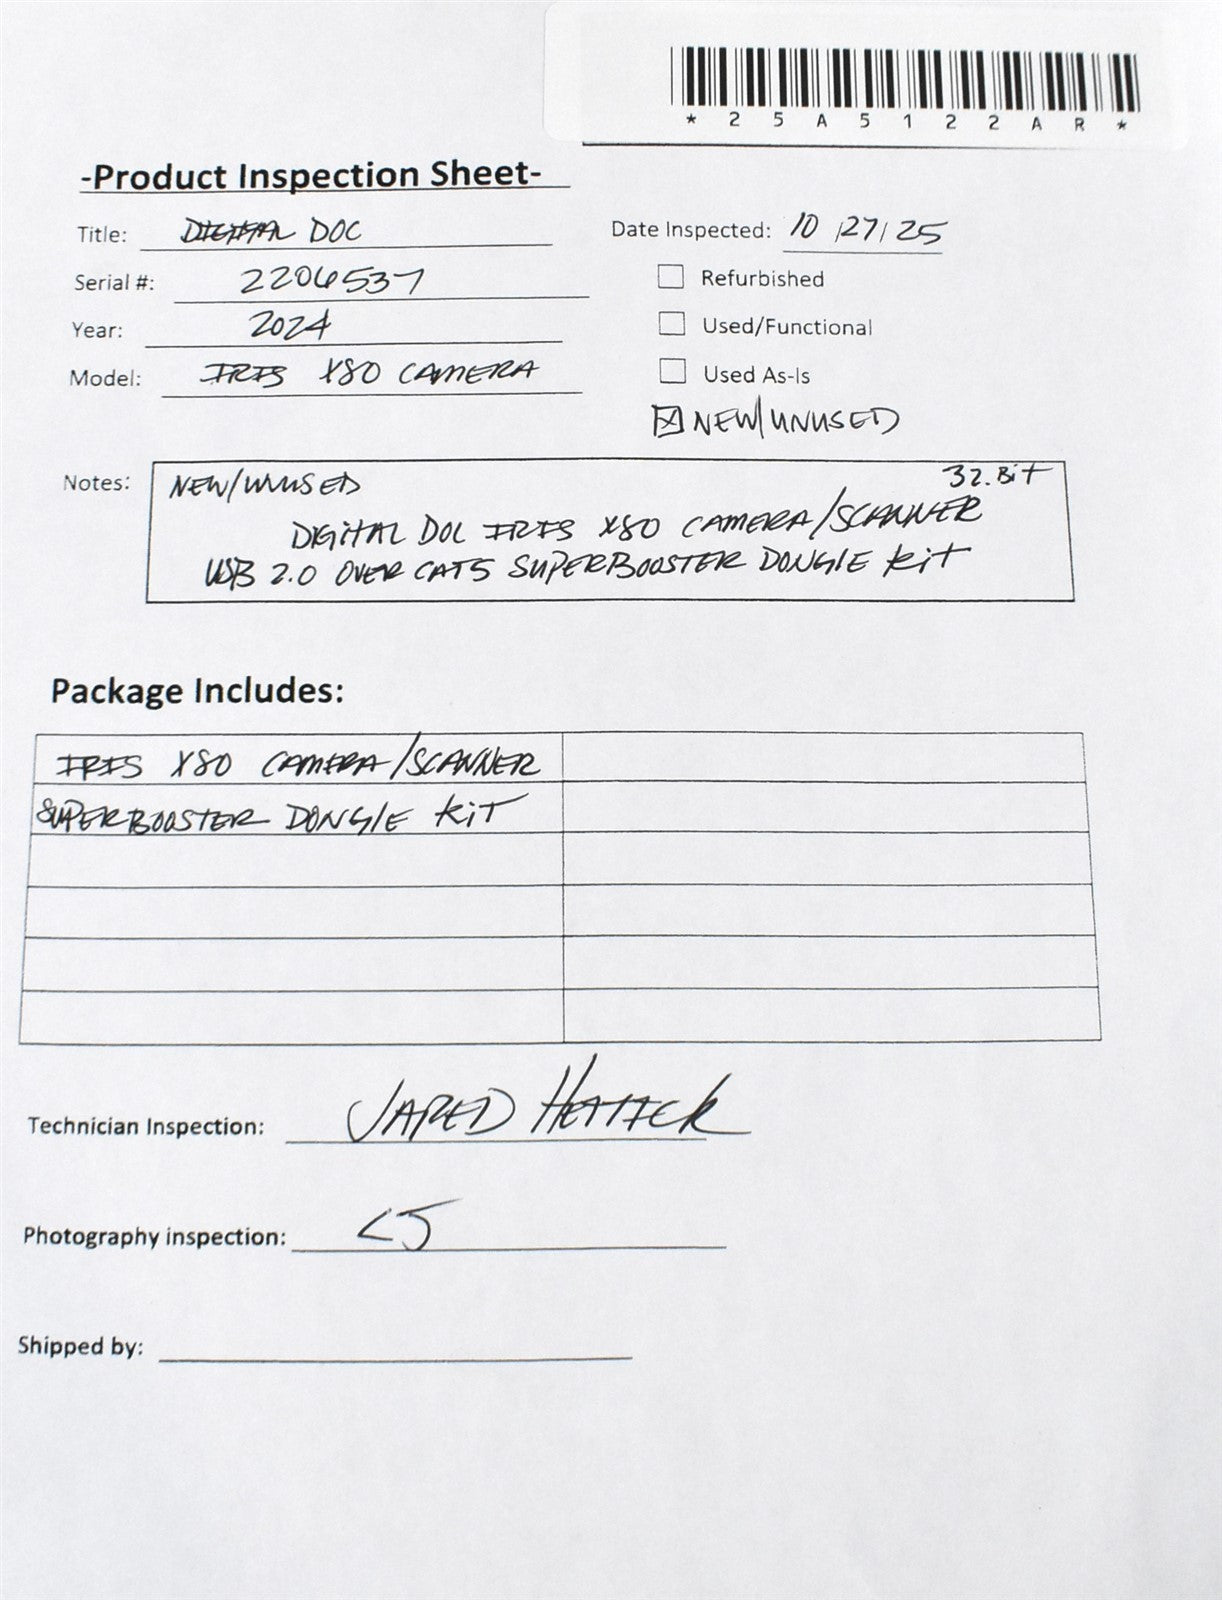 *25A5122AR*
-Product Inspection Sheet-
Title: DIGITAL DOC
Date Inspected: 10/27/25
Serial #: 2206537
Refurbished
Year: 2024
Used/Functional
Model: IRIS X80 CAMERA
Used As-Is
NEW/UNUSED
Notes: NEW/UNUSED 32.Bit
DIGITAL DOC IRIS X80 CAMERA/SCANNER
USB 2.0 OVER CAT5 SUPERBOOSTER DONGLE KiT
Package Includes:
IRIS X80 CAMERA/SCANNER
SUPERBOOSTER DONGLE KiT
Technician Inspection: JARED
Photography inspection:
Shipped by: